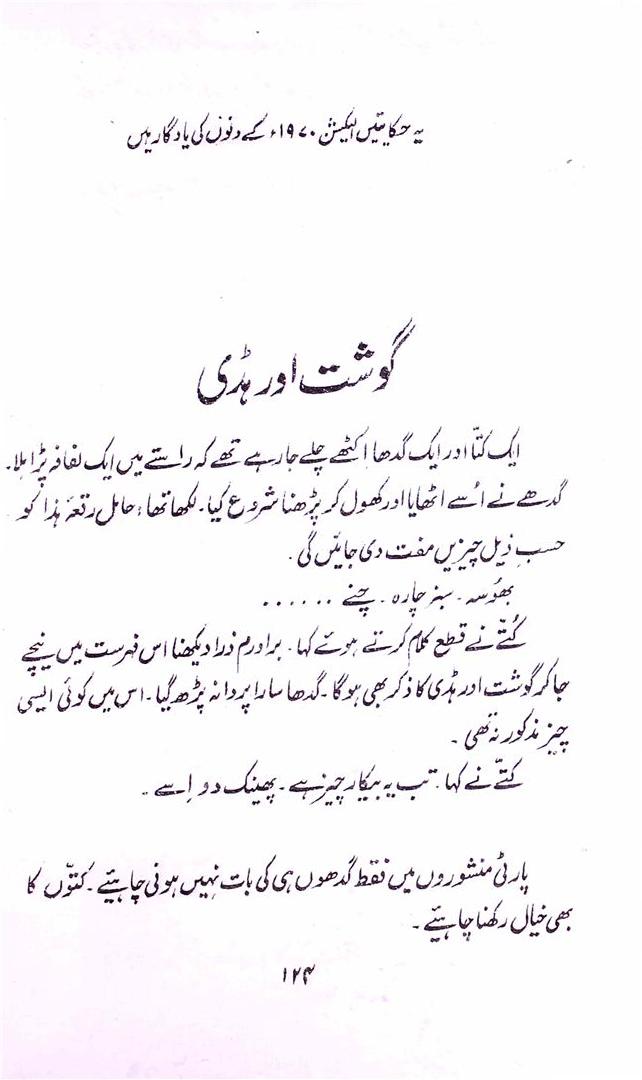 یہ حکایتیں الیکشن ۱۹۷۰ء کے دنوں کی یادگار ہیں
گوشت اور ہڈی
ایک کتّا اور ایک گدھا اکٹھے چلے جا رہے تھے کہ راستے میں ایک لفافہ پڑا ملا۔
گدھے نے اُسے اٹھایا اور کھول کر پڑھنا شروع کیا۔ لکھا تھا، حامل رقعۂ ہٰذا کو
حسب ذیل چیزیں مفت دی جائیں گی۔
بھوُسہ۔ سبز چارہ۔ چنے ......
کُتّے نے قطع کلام کرتے ہوئے کہا۔ برادرم ذرا دیکھنا اس فہرست میں نیچے
جا کر گوشت اور ہڈی کا ذکر بھی ہو گا۔ گدھا سارا پروانہ پڑھ گیا۔ اس میں کوئی ایسی
چیز مذکور نہ تھی۔
کتّے نے کہا۔ تب یہ بیکار چیز ہے۔ پھینک دو اِسے۔
پارٹی منشوروں میں فقط گدھوں ہی کی بات نہیں ہونی چاہیئے۔ کتّوں کا
بھی خیال رکھنا چاہیئے۔
۱۲۴